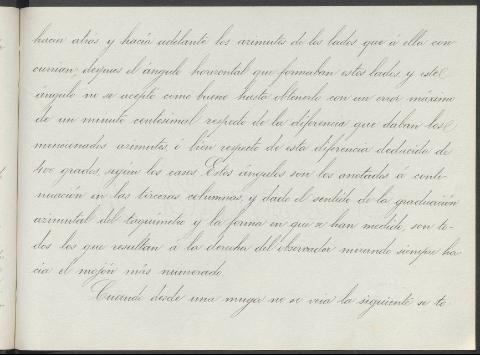 hacia atrás y hacia adelante los azimutes de los lados que á ella con
currian, despues el ángulo horizontal que formaban estos lados, y este
ángulo no se aceptó como bueno hasta obtenerlo con un error máximo
de un minuto centesimal respecto de la diferencia que daban los
mencionados azimutes, ó bien respecto de esta diferencia deducida de
400 grados, según los casos. Estos ángulos son los anotados á conti-
nuación en las terceras columnas, y dado el sentido de la graduación
azimutal del taquímetro y la forma en que se han medido, son to-
dos los que resultan á la derecha del observador mirando siempre ha
cia el mojón más numerado.
Cuando desde una muga no se veia la siguiente se to-